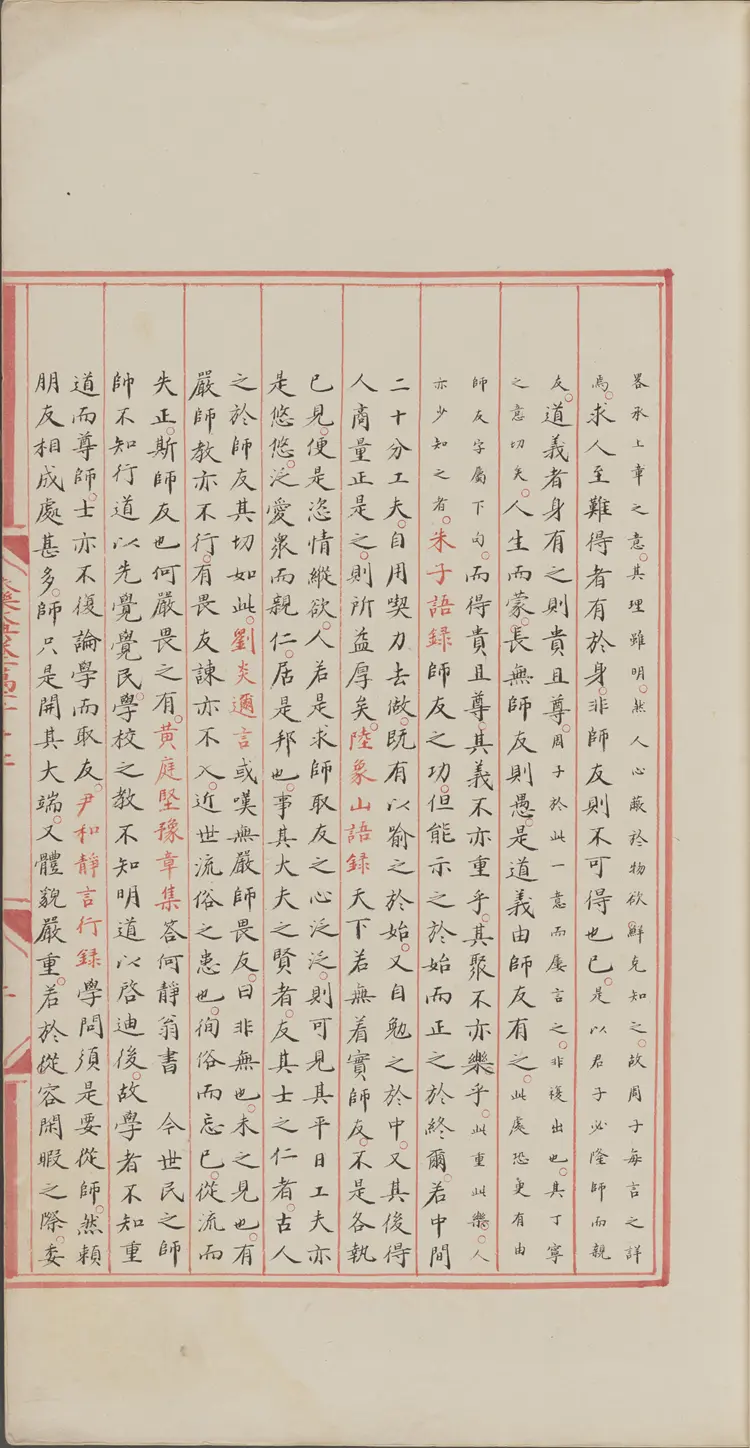 畧承上章之意其理雖明然人心蔽於物欲鮮克知之故周子每言之詳
焉求人至難得者有於身非師友則不可得也已是以君子必隆師而親
友道義者身有之則貴且尊周子於此一意而屢言之非複出也其丁寧
之意切矣人生而蒙長無師友則愚是道義由師友有之此處恐更有由
師友字屬下句而得貴且尊其義不亦重乎其聚不亦樂乎此重此樂人
亦少知之者朱子語録師友之功但能示之於始而正之於終爾若中間
二十分工夫自用喫力去做既有以喻之於始又自勉之於中又其後得
人商量正是之則所益厚矣陸象山語録天下若無着實師友不是各執
已見便是恣情縱欲人若是求師取友之心泛泛則可見其平日工夫亦
是悠悠泛愛衆而親仁居是邦也事其大夫之賢者友其士之仁者古人
之於師友其切如此劉炎邇言或嘆無嚴師畏友曰非無也未之見也有
嚴師教亦不行有畏友諫亦不入近世流俗之患也徇俗而忘已從流而
失正斯師友也何嚴畏之有黄庭堅豫章集答何静翁書 今世民之師
帥不知行道以先覺覺民學校之教不知明道以啓迪後故學者不知重
道而尊師士亦不復論學而取友尹和靜言行録學問須是要從師然賴
朋友相成處甚多師只是開其大端又體貌嚴重若於從容閑暇之際委